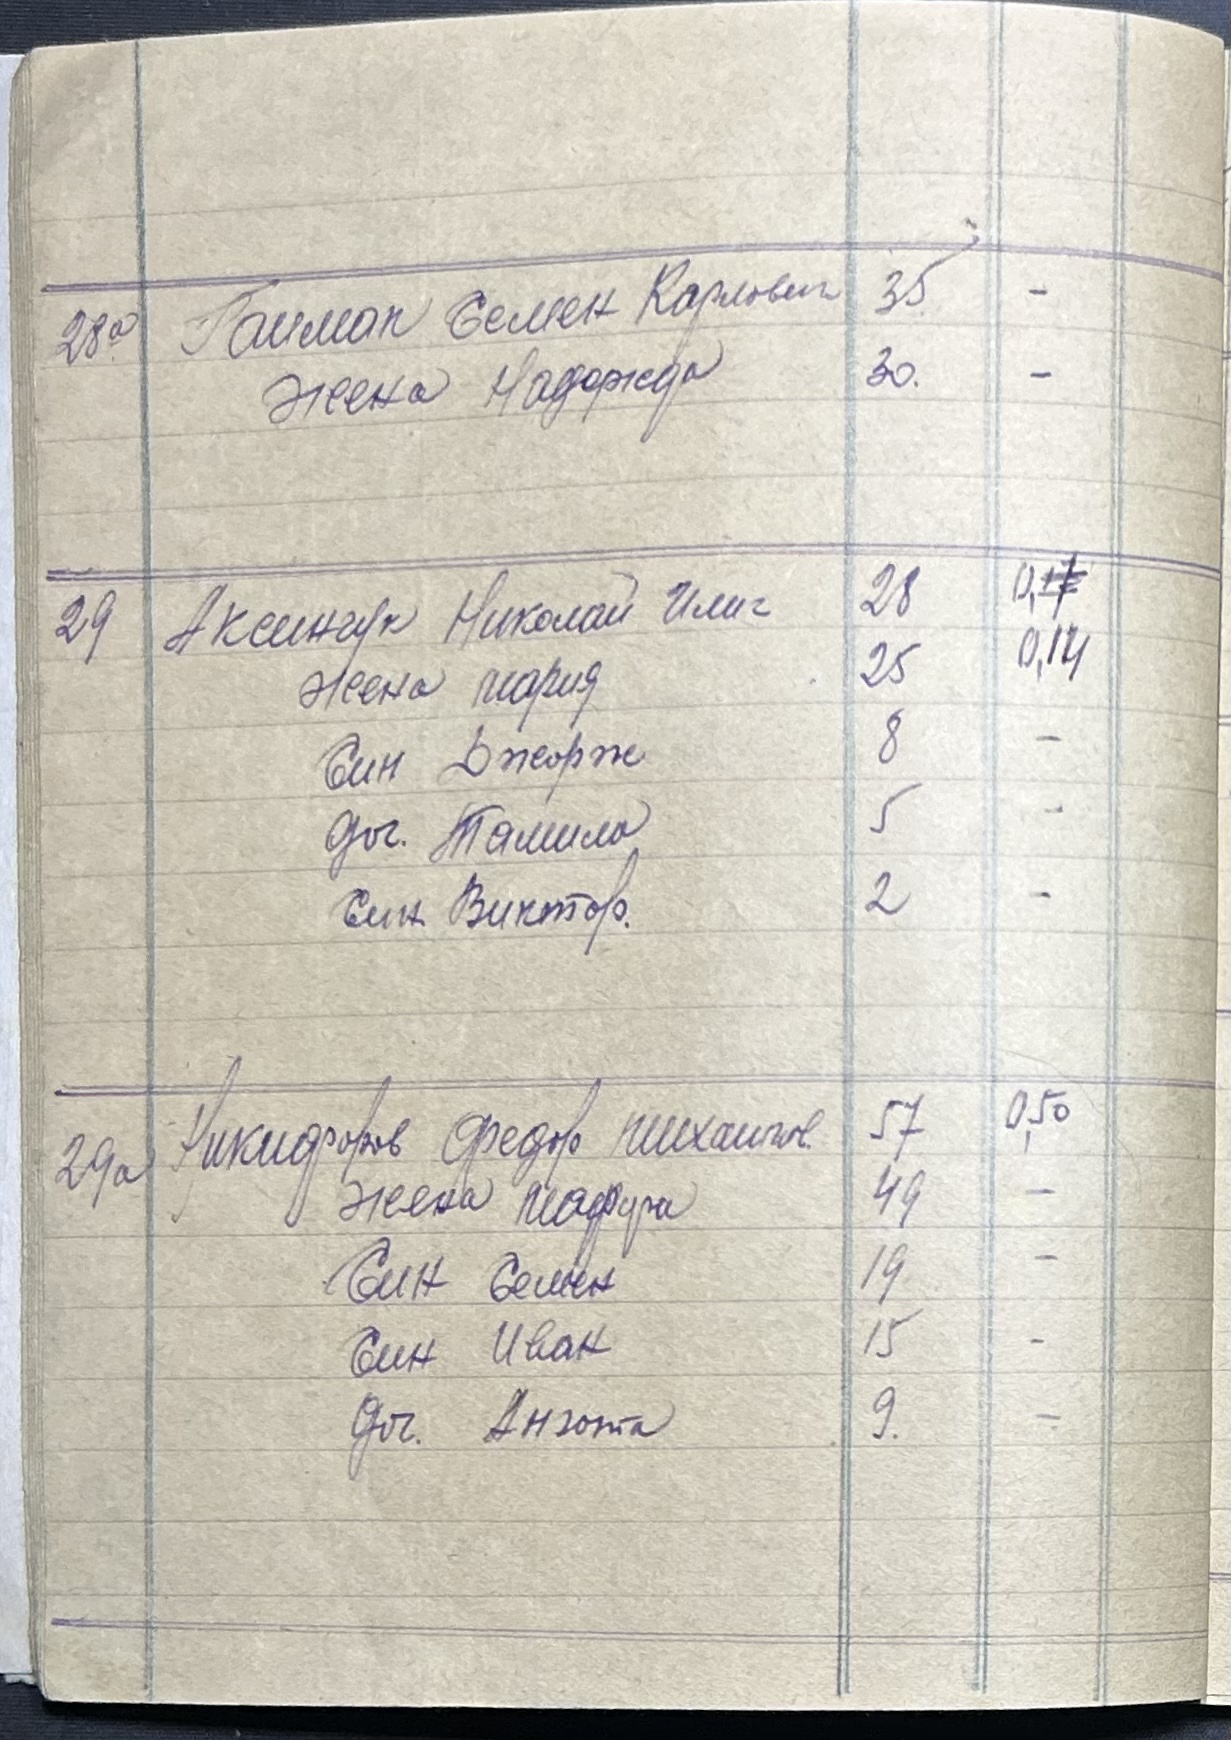 28а Гайман Семен Карлович 35. -
Жена Надежда 30. -
29 Аксинчук Николай Илич 28
Жена Мария 25 0,14
Син Джорж 8 -
доч. Тамила 5 -
Син Виктор. 2 -
29а Никифоров Федор Михайлов. 57 0,50
Жена 49 -
Син Семен 19 -
Син Иван 15 -
доч. Анюта 9. -